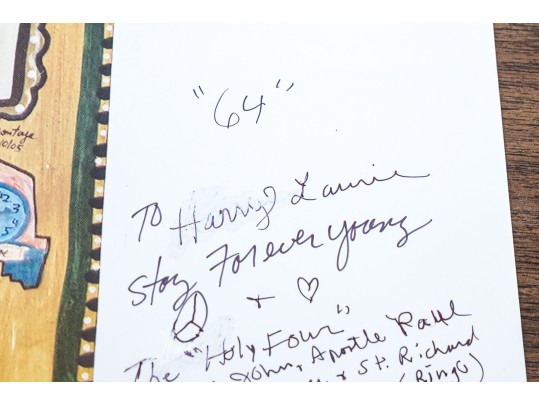 "64"
To Harry Laurie
Stay Forever young
+
The "Holy Four"
John, Apostle Paul
+ St. Richard
(Ringo)
10/05
2
3
4
5